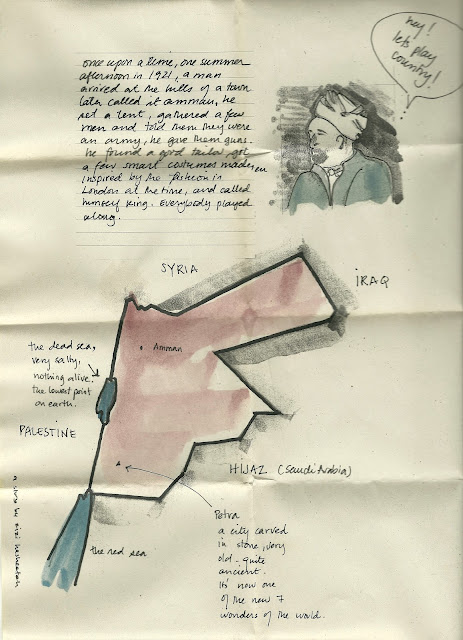 once upon a time, one summer
afternoon in 1921, a man
arrived at the hills of a town
later called it amman, he
set a tent, gathered a few
men and told them they were
an army, he gave them guns.
he found a good tailor, got
a few smart costumes made, en
inspired by the fashion in
London at the time, and called
himself king. Everybody played
along.
hey!
lets play
country!
SYRIA
IRAQ
the dead sea,
very salty,
nothing alive.
the lowest point
on earth.
Amman
PALESTINE
HIJAZ (Saudi Arabia)
Petra
a city carved
in stone, very
old - quite
ancient.
It's now one
of the new 7
wonders of the world.
the red sea
a story by